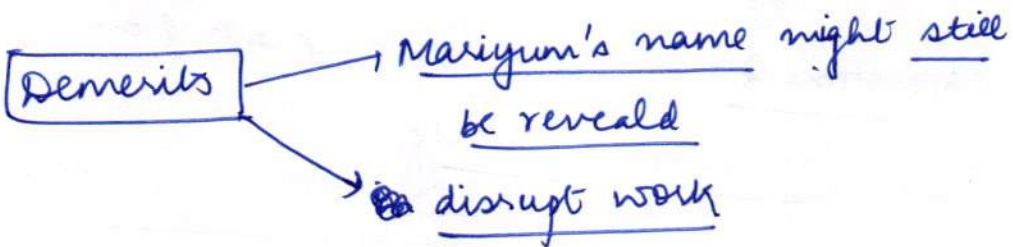 Demerits
Mariyum's name might still
be reveald
disrupt work